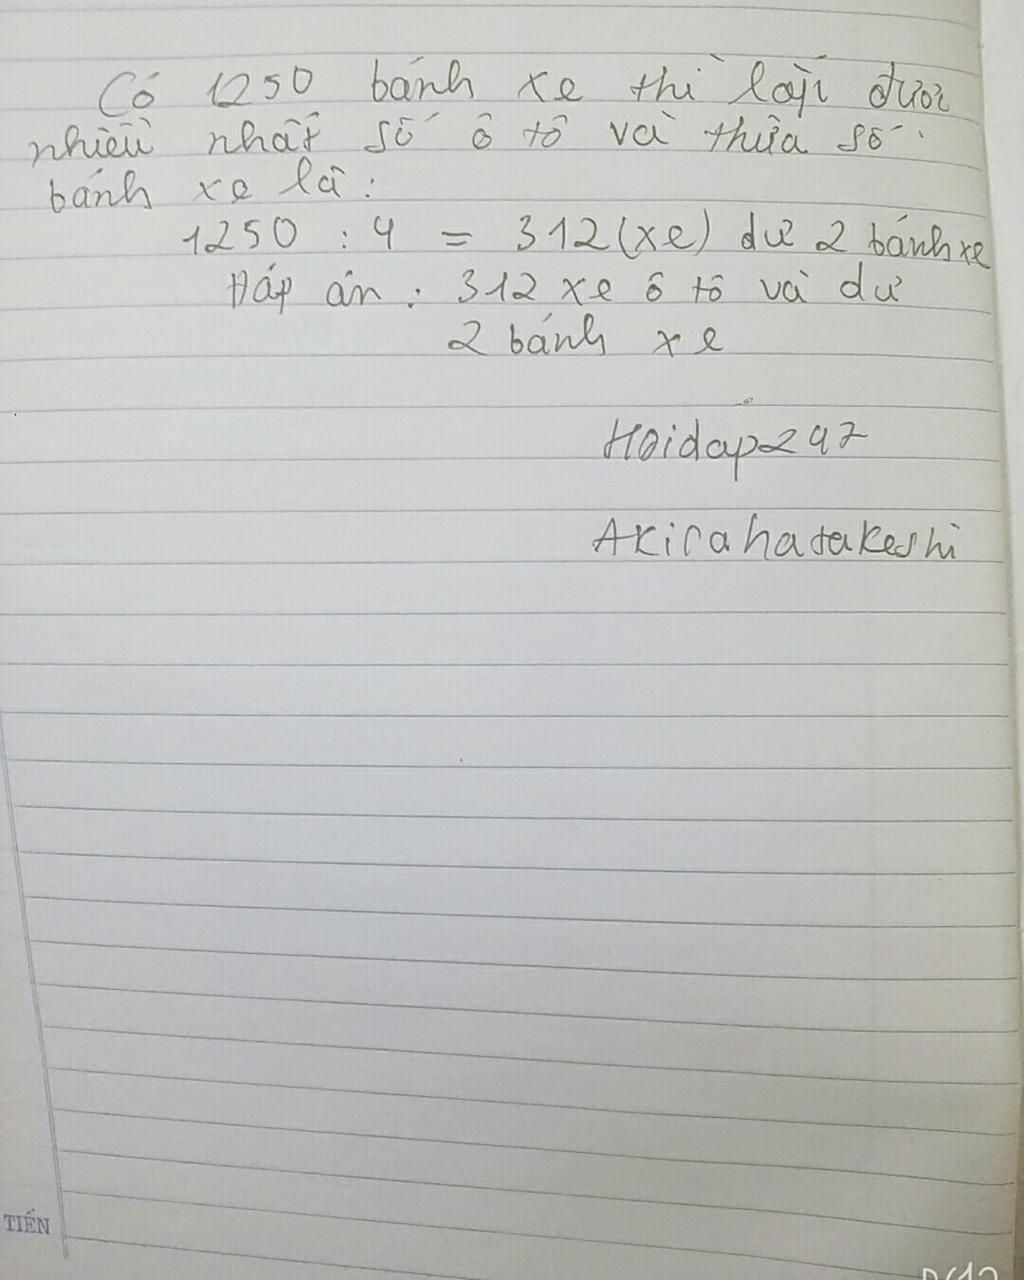 Có 1250 bánh xe thì lắp được
nhiều nhất số ô tô và thừa số
bánh xe là:
1250 : 4 = 312 (xe) dư 2 bánh xe
Đáp án : 312 xe ô tô và dư
2 bánh xe
Hoidap247
Akirahatakeshi
TIẾN